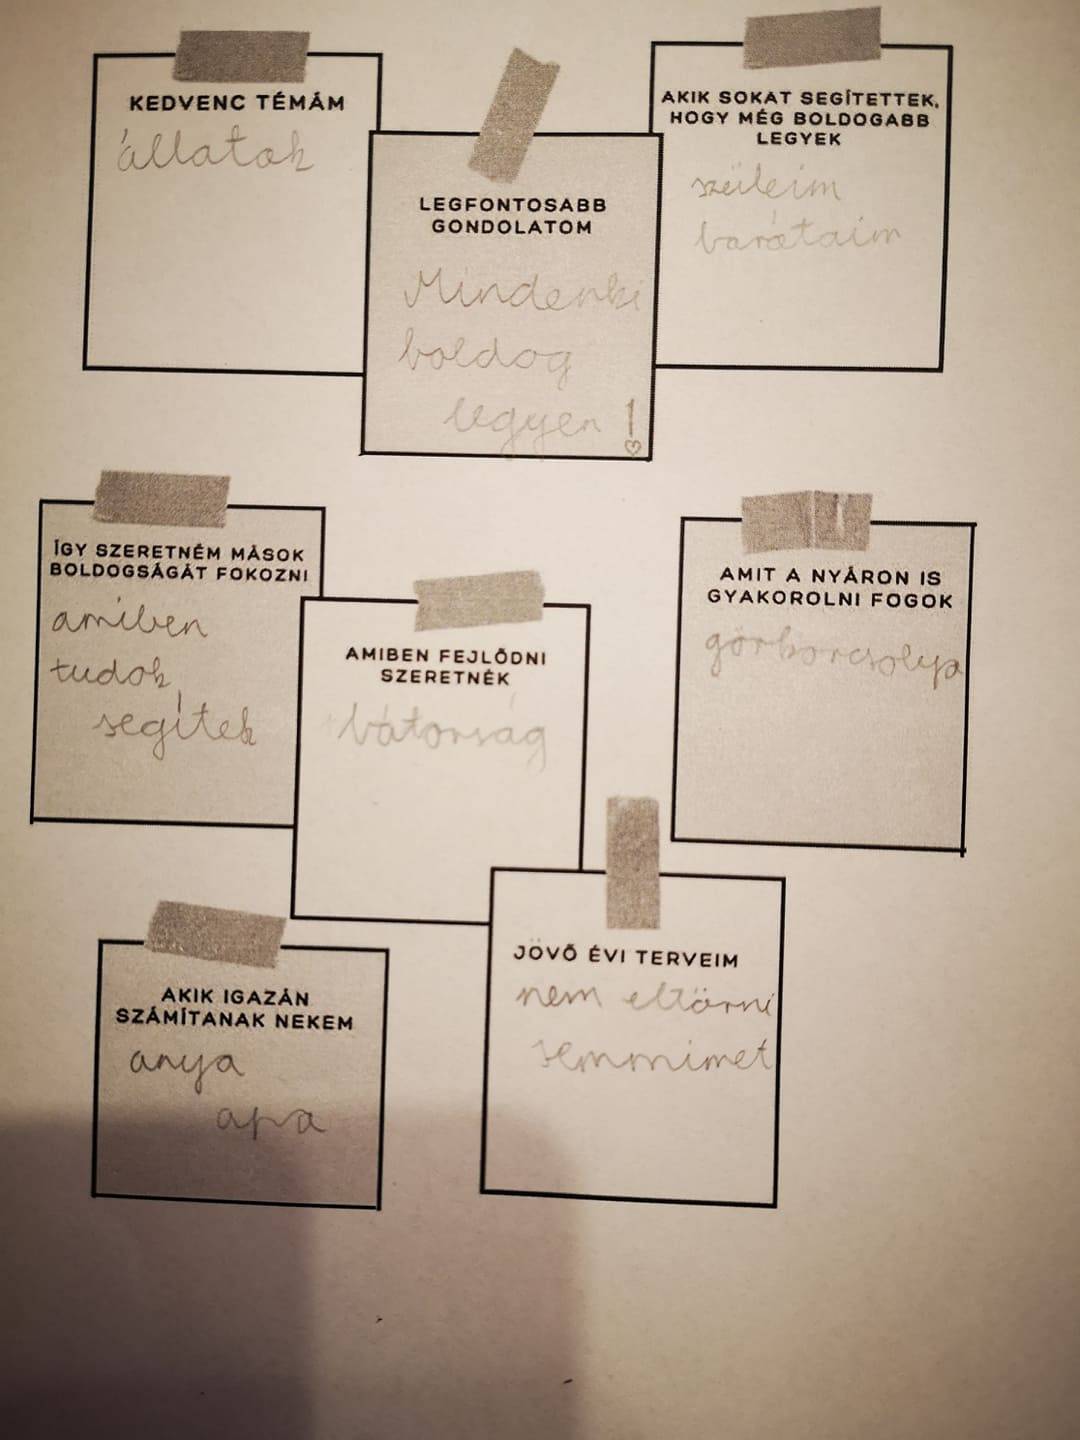 KEDVENC TÉMÁM
állatok
LEGFONTOSABB
GONDOLATOM
Mindenki
boldog
legyen!
AKIK SOKAT SEGÍTETTEK,
HOGY MÉG BOLDOGABB
LEGYEK
szüleim
barátaim
ÍGY SZERETNÉM MÁSOK
BOLDOGSÁGÁT FOKOZNI
amiben
tudok
segítek
AMIBEN FEJLŐDNI
SZERETNÉK
bátorság
AMIT A NYÁRON IS
GYAKOROLNI FOGOK
görkorcsolya
AKIK IGAZÁN
SZÁMÍTANAK NEKEM
anya
apa
JÖVŐ ÉVI TERVEIM
nem eltörni
semmimet